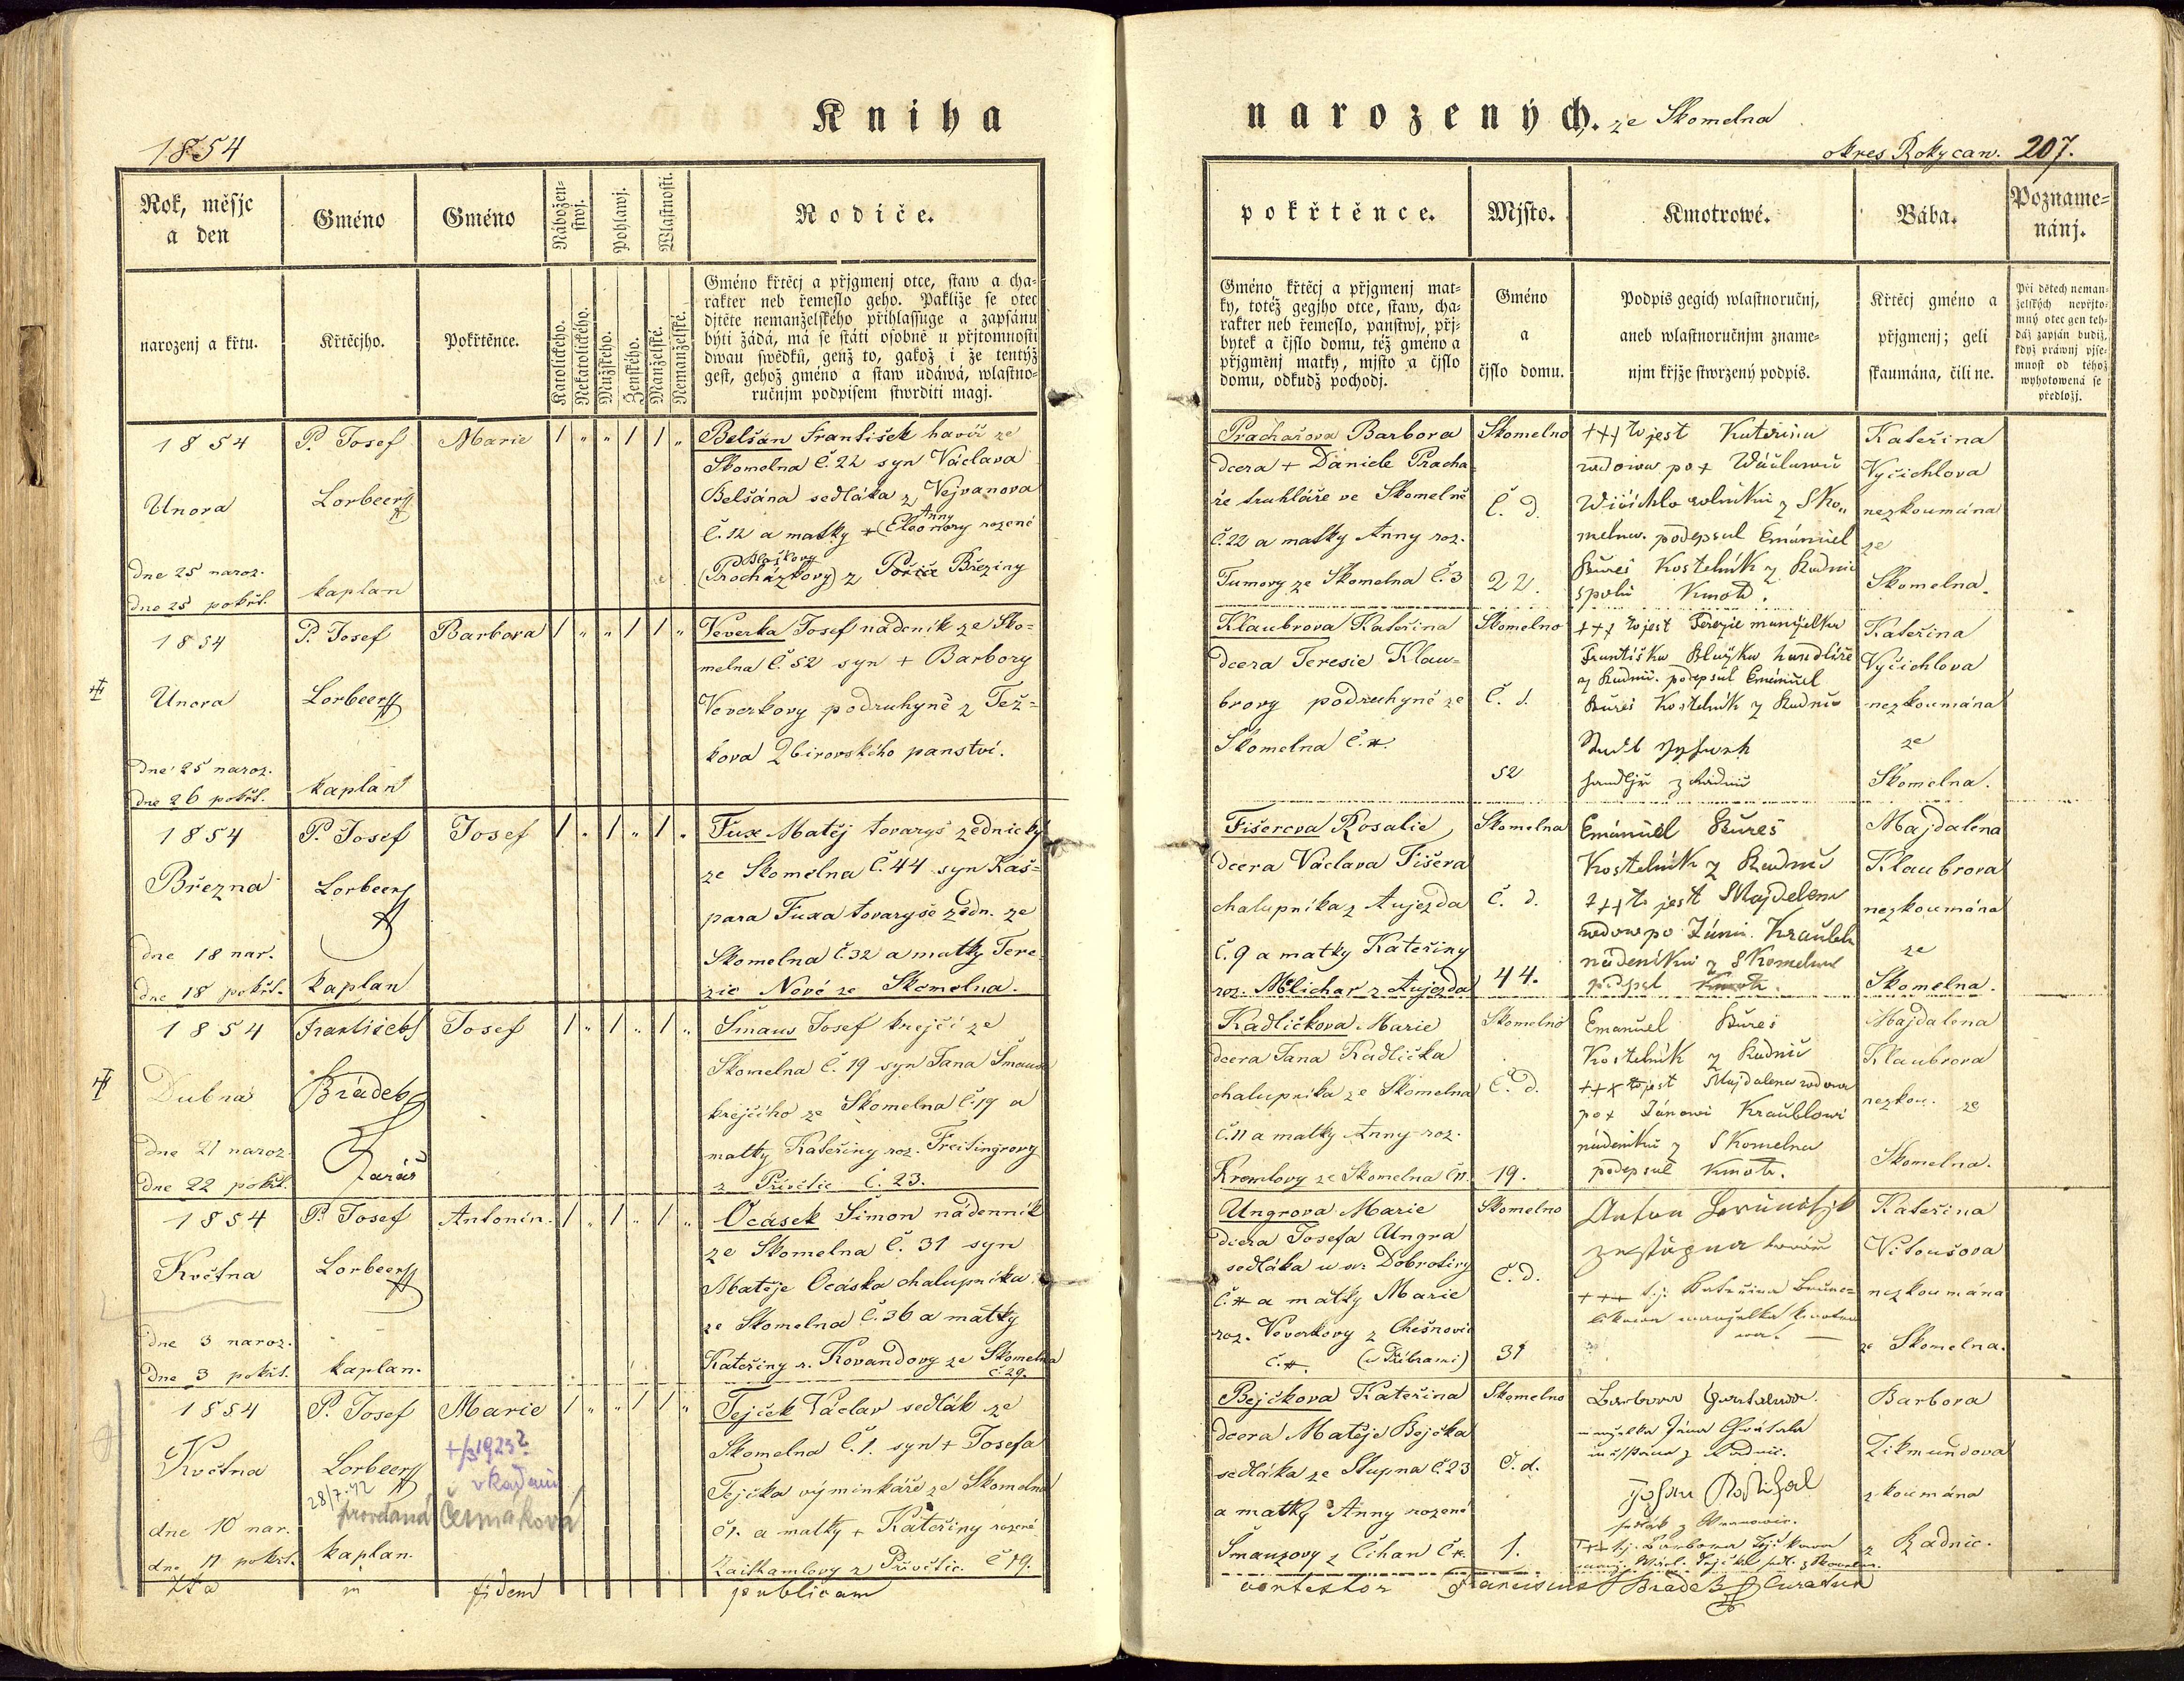 Kniha
1854
Rok, měsjc
a den
narozenj a křtu.
Gméno
Křtěcjho.
Gméno
Pokřtěnce.
Nábožen-
stwj.
Katolického.
Nekatolického.
Pohlawj.
Mužského.
Ženského.
Wlastnosti.
Manželské.
Nemanželské.
Rodiče.
Gméno křtěcj a přjgmenj otce, staw a cha-
rakter neb řemeslo geho. Pakliže se otec
djtěte nemanželského přihlassuge a zapsánu
býti žádá, má se státi osobně u přjtomnosti
dwau swědků, genž to, gakož i že tentýž
gest, gehož gméno a staw udáwá, wlastno-
ručnjm podpisem stwrditi magj.
1854
Unora
dne 25 naroz.
dne 25 pokřt.
P. Josef
Lorbeer
kaplan
Marie
1 „ „ 1 1 „
Belšán František havíř ze
Skomelna č. 22 syn Václava
Belšána sedláka z Vejvanova
Anny
č. 12 a matky + (Eleonory rozené
Blaškovy
(Procházkovy) z Březiny
1854
Unora
dne 25 naroz.
dne 26 pokřt.
P. Josef
Lorbeer
kaplan
Barbora
1 „ „ 1 1 „
Veverka Josef nádeník ze Sko-
melna č. 52 syn + Barbory
Veverkovy podruhyně z Těž-
kova Zbirovského panství.
1854
Března
dne 18 nar.
dne 18 pokřt.
P. Josef
Lorbeer
kaplan
Josef
1 „ 1 „ 1 „
Fux Matěj tovaryš zednický
ze Skomelna č. 44 syn Kaš-
para Fuxa tovaryše zedn. ze
Skomelna č. 32 a matky Tere-
zie Nové ze Skomelna.
1854
Dubna
dne 21 naroz.
dne 22 pokřt.
František
Bradeb
Farář
Josef
1 „ 1 „ 1 „
Šmaus Josef krejčí ze
Skomelna č. 19 syn Jana Šmausa
krejčího ze Skomelna č. 19 a
matky Kateřiny roz. Freisingrovy
z Přívětic č. 23.
1854
Května
dne 3 naroz.
dne 3 pokřt.
P. Josef
Lorbeer
kaplan.
Antonín.
1 „ 1 „ 1 „
Ocásek Šimon nádenník
ze Skomelna č. 31 syn
Matěje Ocáska chalupníka
ze Skomelna č. 36 a matky
Kateřiny r. Kovandovy ze Skomelna
č. 29.
1854
Května
dne 10 nar.
dne 11 pokřt.
P. Josef
Lorbeer
28/7.42
provdaná Čermáková
kaplan.
Marie
+/3 1923
v Kadani
1 „ „ 1 1 „
Tejček Václav sedlák ze
Skomelna č. 1. syn + Josefa
Tejčka výminkáře ze Skomelna
č 1. a matky + Kateřiny rozené
z Přívětic. č 19.
Ita in fidem publicam
narozených. ze Skomelna
okres Rokycan. 207.
pokřtěnce.
Gméno křtěcj a přjgmenj mat-
ky, totéž gegjho otce, staw, cha-
rakter neb řemeslo, panstwj, přj-
bytek a čjslo domu, též gméno a
přjgměnj matky, mjsto a čjslo
domu, odkudž pochodj.
Mjsto.
Gméno
a
čjslo domu.
Kmotrowé.
Podpis gegich wlastnoručnj,
aneb wlastnoručnjm zname-
njm křjže stwrzený podpis.
Bába.
Křtěcj gméno a
přjgmenj; geli
skaumána, čili ne.
Pozname-
nánj.
Při dětech neman-
želských nepřjto-
mný otec gen teh-
dáž zapsán budiž,
když práwnj pjse-
mnost od téhož
wyhotowená se
předložj.
Prachařova Barbora
dcera + Daniele Pracha-
ře truhláře ve Skomelně
č. 22 a matky Anny roz.
Tumovy ze Skomelna č. 3
Skomelno
č. d.
22.
+++ to jest Kateřina
wdowa po + Wáclawu
Wičichlo rolníku z Sko-
melna. podepsal Emánuel
Bureš Kostelník z Radnic
spolu Kmotr.
Kateřina
Vyčichlova
nezkoumána
ze
Skomelna.
Klaubrova Kateřina
dcera Teresie Klau-
brovy podruhyně ze
Skomelna č. *.
Skomelno
č. d.
52
+++ to jest Terezie manželka
Františka Blažka handlíře
z Radnic. podepsal Emánuel
Bureš Kostelník z Radnic
z Radnic
Kateřina
Vyčichlova
nezkoumána
ze
Skomelna.
Fišerova Rosalie,
dcera Václava Fišera
chalupníka z Aujezda
č. 9 a matky Kateřiny
roz. Mlichar z Aujezda
Skomelna
č. d.
44.
Emánuel Bureš
Kostelník z Radnic
+++ to jest Majdelena
wdowa po Jánu Kraubl
nádeníku z Skomelna
podpsal
Majdalena
Klaubrova
nezkoumána
ze
Skomelna.
Kadlíčkova Marie
dcera Jana Kadlíčka
chalupníka ze Skomelna
č. 11 a matky Anny roz.
Kremlovy ze Skomelna č 11.
Skomelno
č. d.
19.
Emanuel Bureš
Kostelník z Radnic
+++ to jest Majdalena wdowa
po + Jánowi Kraublowi
nádeníku z Skomelna
podepsal Kmotr.
Majdalena
Klaubrova
nezkou. ze
Skomelna.
Ungrova Marie
dcera Josefa Ungra
sedláka u sv. Dobrotivy
č. * a matky Marie
roz. Veverkovy z Chešnovic
č. * (u Příbrami)
Skomelno
č. d.
31
Anton
+++ t.j. Kateřina
manželka
Kateřina
Vitoušova
nezkoumána
ze Skomelna.
Bejčkova Kateřina
dcera Matěje Bejčka
sedláka ze Stupna č. 23
a matky Anny rozené
Šmauzovy z Číhan č *.
Skomelno
č. d.
1.
Barbora
manželka Jána
z Radnic.
Johan
sedlák z
+++ t.j. Barbora Tejčkowa
Barbora
Zikmundova
zkoumána
z Radnic.
contestor Franciscus Bradeb Curatus